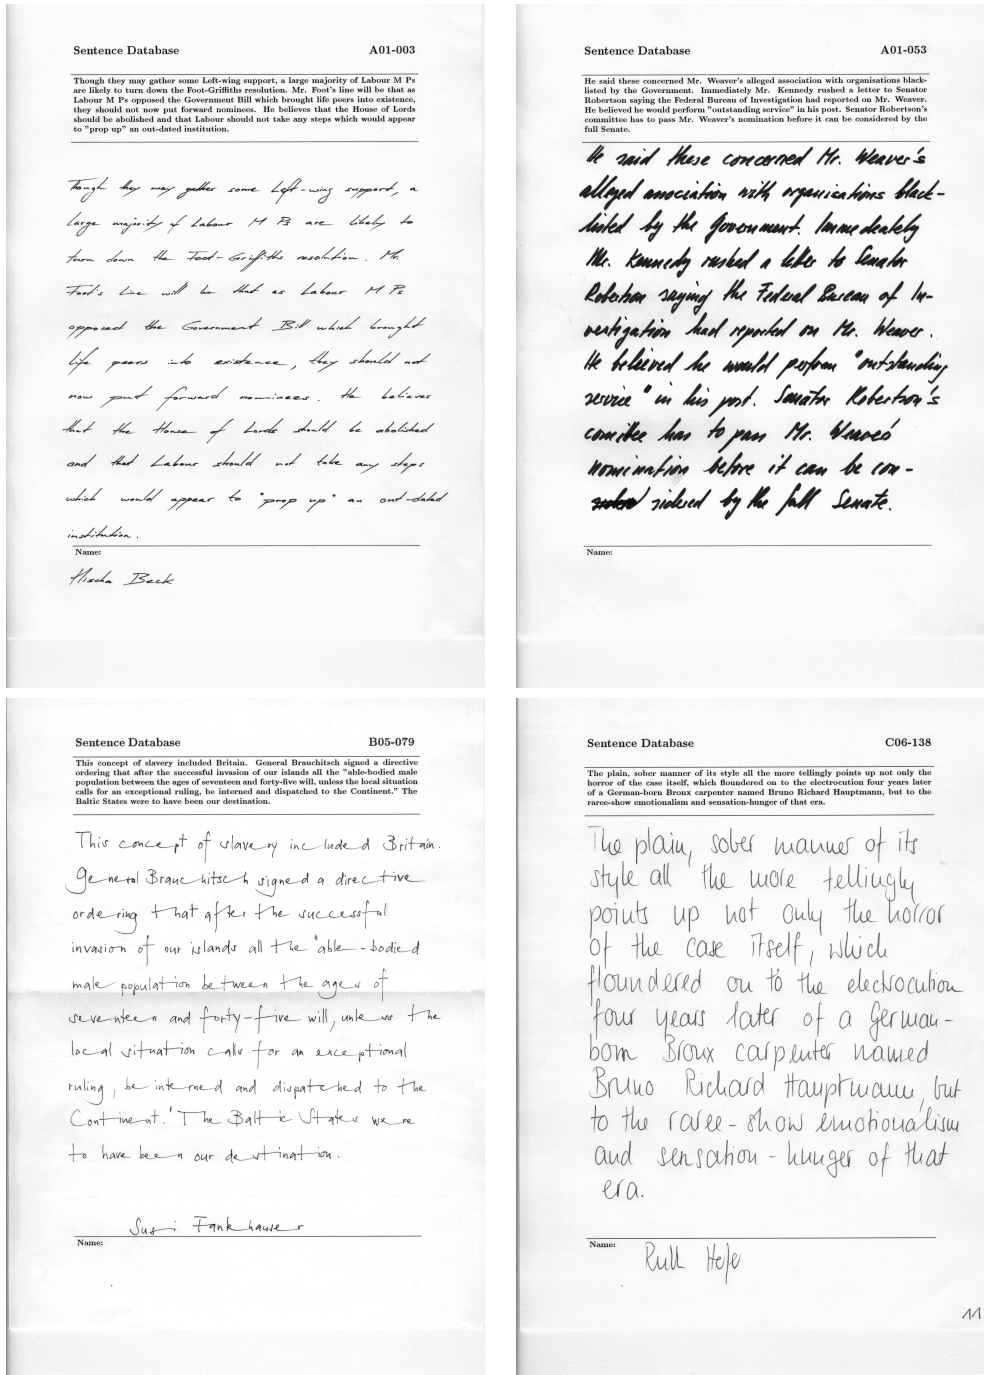 Sentence Database A01-003
Though they may gather some Left-wing support, a large majority of Labour M Ps
are likely to turn down the Foot-Griffiths resolution. Mr. Foot's line will be that as
Labour M Ps opposed the Government Bill which brought life peers into existence,
they should not now put forward nominees. He believes that the House of Lords
should be abolished and that Labour should not take any steps which would appear
to "prop up" an out-dated institution.
Though they may gather some Left-wing support, a
large majority of Labour M Ps are likely to
turn down the Foot-Griffiths resolution. Mr.
Foot's line will be that as Labour M Ps
opposed the Government Bill which brought
life peers into existence, they should not
now put forward nominees. He believes
that the House of Lords should be abolished
and that Labour should not take any steps
which would appear to "prop up" an out-dated
institution.
Name:
Beck
Sentence Database A01-053
He said these concerned Mr. Weaver's alleged association with organisations black-
listed by the Government. Immediately Mr. Kennedy rushed a letter to Senator
Robertson saying the Federal Bureau of Investigation had reported on Mr. Weaver.
He believed he would perform "outstanding service" in his post. Senator Robertson's
committee has to pass Mr. Weaver's nomination before it can be considered by the
full Senate.
He said these concerned Mr. Weaver's
alleged association with organisations black-
listed by the Government. Immediately
Mr. Kennedy rushed a letter to Senator
Robertson saying the Federal Bureau of In-
vestigation had reported on Mr. Weaver.
He believed he would perform "outstanding
service" in his post. Senator Robertson's
comittee has to pass Mr. Weaver's
nomination before it can be con-
sidered by the full Senate.
Name:
Sentence Database B05-079
This concept of slavery included Britain. General Brauchitsch signed a directive
ordering that after the successful invasion of our islands all the "able-bodied male
population between the ages of seventeen and forty-five will, unless the local situation
calls for an exceptional ruling, be interned and dispatched to the Continent." The
Baltic States were to have been our destination.
This concept of slavery included Britain.
General Brauchitsch signed a directive
ordering that after the successful
invasion of our islands all the "able-bodied
male population between the ages of
seventeen and forty-five will, unless the
local situation calls for an exceptional
ruling, be interned and dispatched to the
Continent." The Baltic States were
to have been our destination.
Susi Fankhauser
Name:
Sentence Database C06-138
The plain, sober manner of its style all the more tellingly points up not only the
horror of the case itself, which floundered on to the electrocution four years later
of a German-born Bronx carpenter named Bruno Richard Hauptmann, but to the
raree-show emotionalism and sensation-hunger of that era.
The plain, sober manner of its
style all the more tellingly
points up not only the horror
of the case itself, which
floundered on to the electrocution
four years later of a German-
born Bronx carpenter named
Bruno Richard Hauptmann, but
to the raree-show emotionalism
and sensation-hunger of that
era.
Name:
11